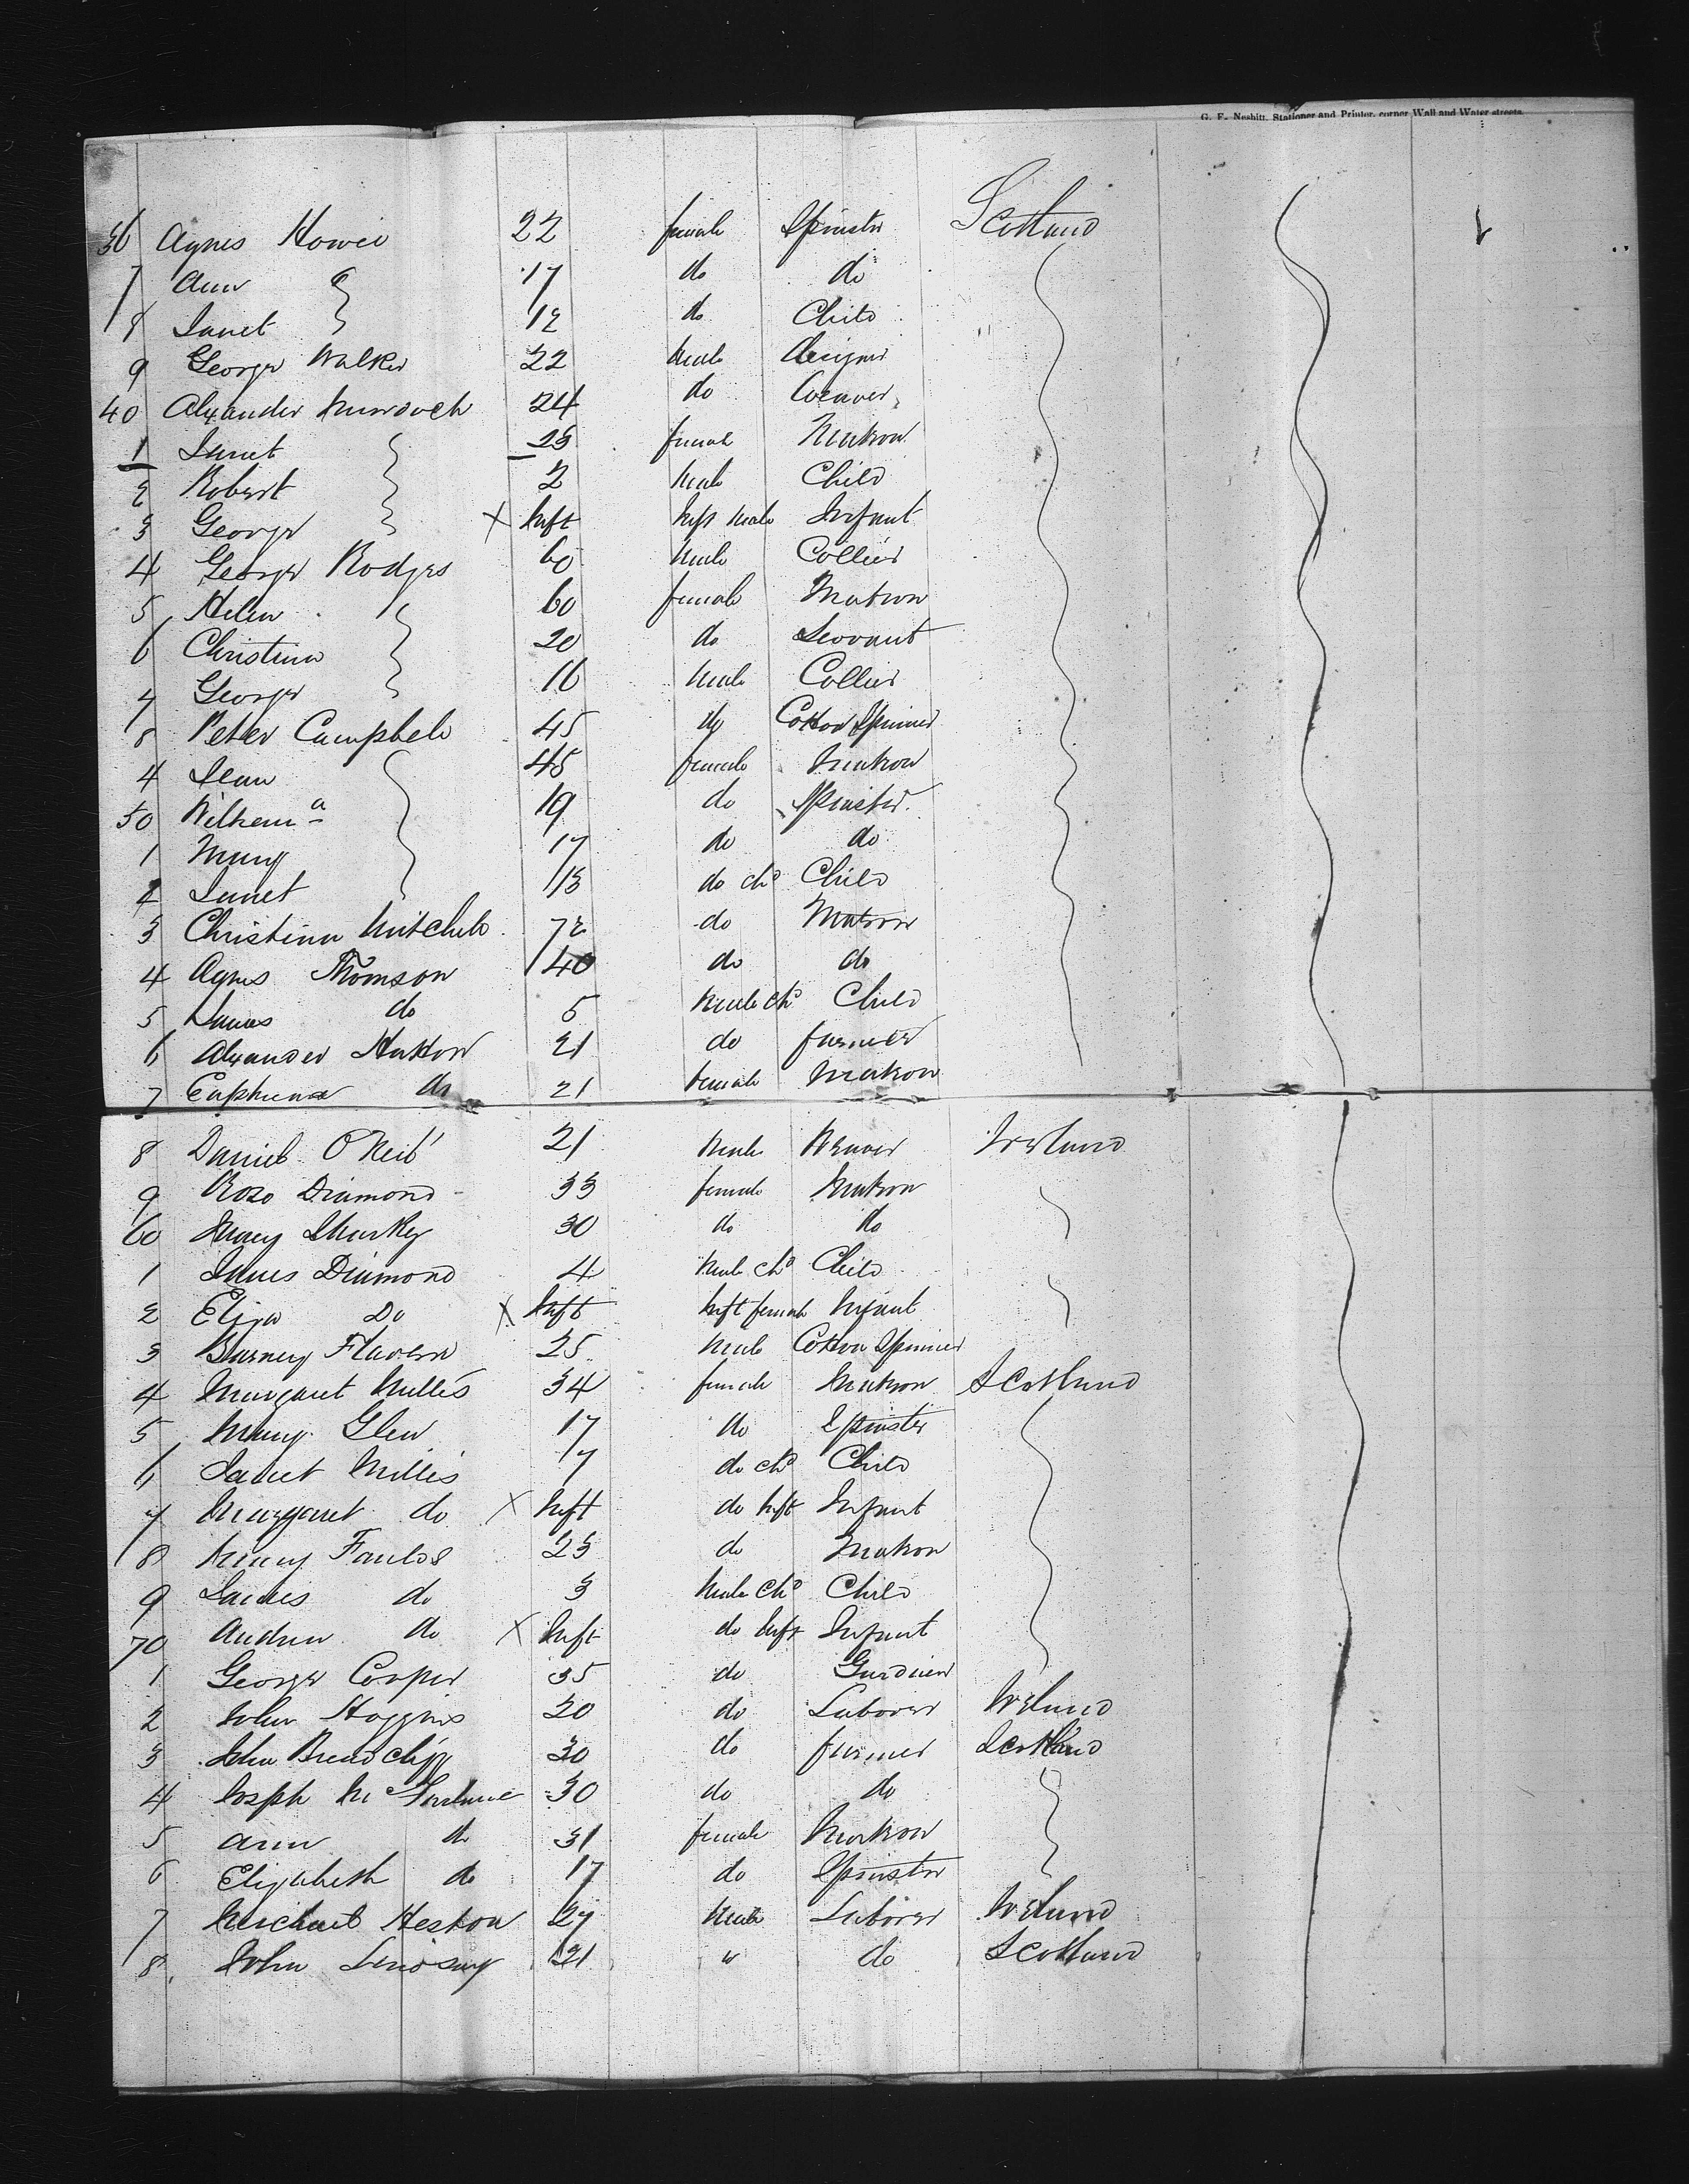 G. F. Nesbitt, Stationer and Printer, corner Wall and Water streets.
36 Agnes Howie 22 female Spinster Scotland
7 Ann 17 do do
8 Janet 12 do Child
9 George Walker 22 Male
40 Alexander Murdoch 24 do Weaver
1 Janet 23 female Matron
2 Robert 2 Male Child
3 George X Inft Inft Male Infant
4 George Rodgers 60 Male Collier
5 Helen 60 female Matron
6 Christina 20 do Servant
7 George 16 Male Collier
8 Peter Campbell 45 do Cotton Spinner
4 Jean 45 female Matron
50 Wilhemª 19 do Spinster
1 Mary 17 do do
2 Janet 13 do chd Child
3 Christina Mitchell 72 do Matron
4 Agnes Thomson 40 do do
5 James do 5 Male Chd Child
6 Alexander Hutton 21 do farmer
7 Euphema do 21 female Matron
8 Daniel O'Neil 21 Male Weaver Ireland
9 Rose Diamond 33 female Matron
60 Mary Sharkey 30 do do
1 James Diamond 4 Male chd Child
2 Eliza Do X Inft Inft female Infant
3 Barney Flavern 25 Male Cotton Spinner
4 Margaret Millis 34 female Matron Scotland
5 Mary Glen 17 do Spinster
6 Janet Millis 7 do chd Child
7 Margaret do X Inft do Inft Infant
8 Mary Faulds 23 do Matron
9 James do 3 Male Chd Child
70 Andrew do X Inft do Inft Infant
1 George Cooper 35 do Gardiner
2 John Hoggins 20 do Laborer Ireland
3 John 30 do farmer Scotland
4 Joseph Mc 30 do do
5 Ann do 31 female Matron
6 Elizabeth do 17 do Spinster
7 Michael Heston 27 Male Laborer Ireland
8 John Lindsay 21 " do Scotland